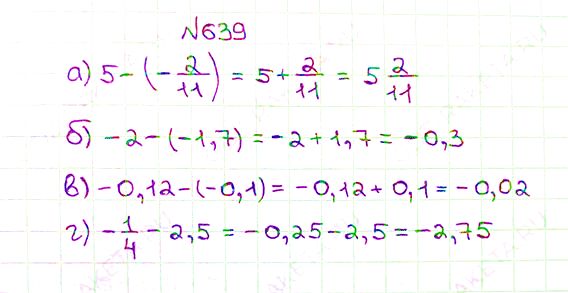 №639
а) 5 - (-2/11) = 5 + 2/11 = 5 2/11
б) -2 - (-1,7) = -2 + 1,7 = -0,3
в) -0,12 - (-0,1) = -0,12 + 0,1 = -0,02
г) -1/4 - 2,5 = -0,25 - 2,5 = -2,75